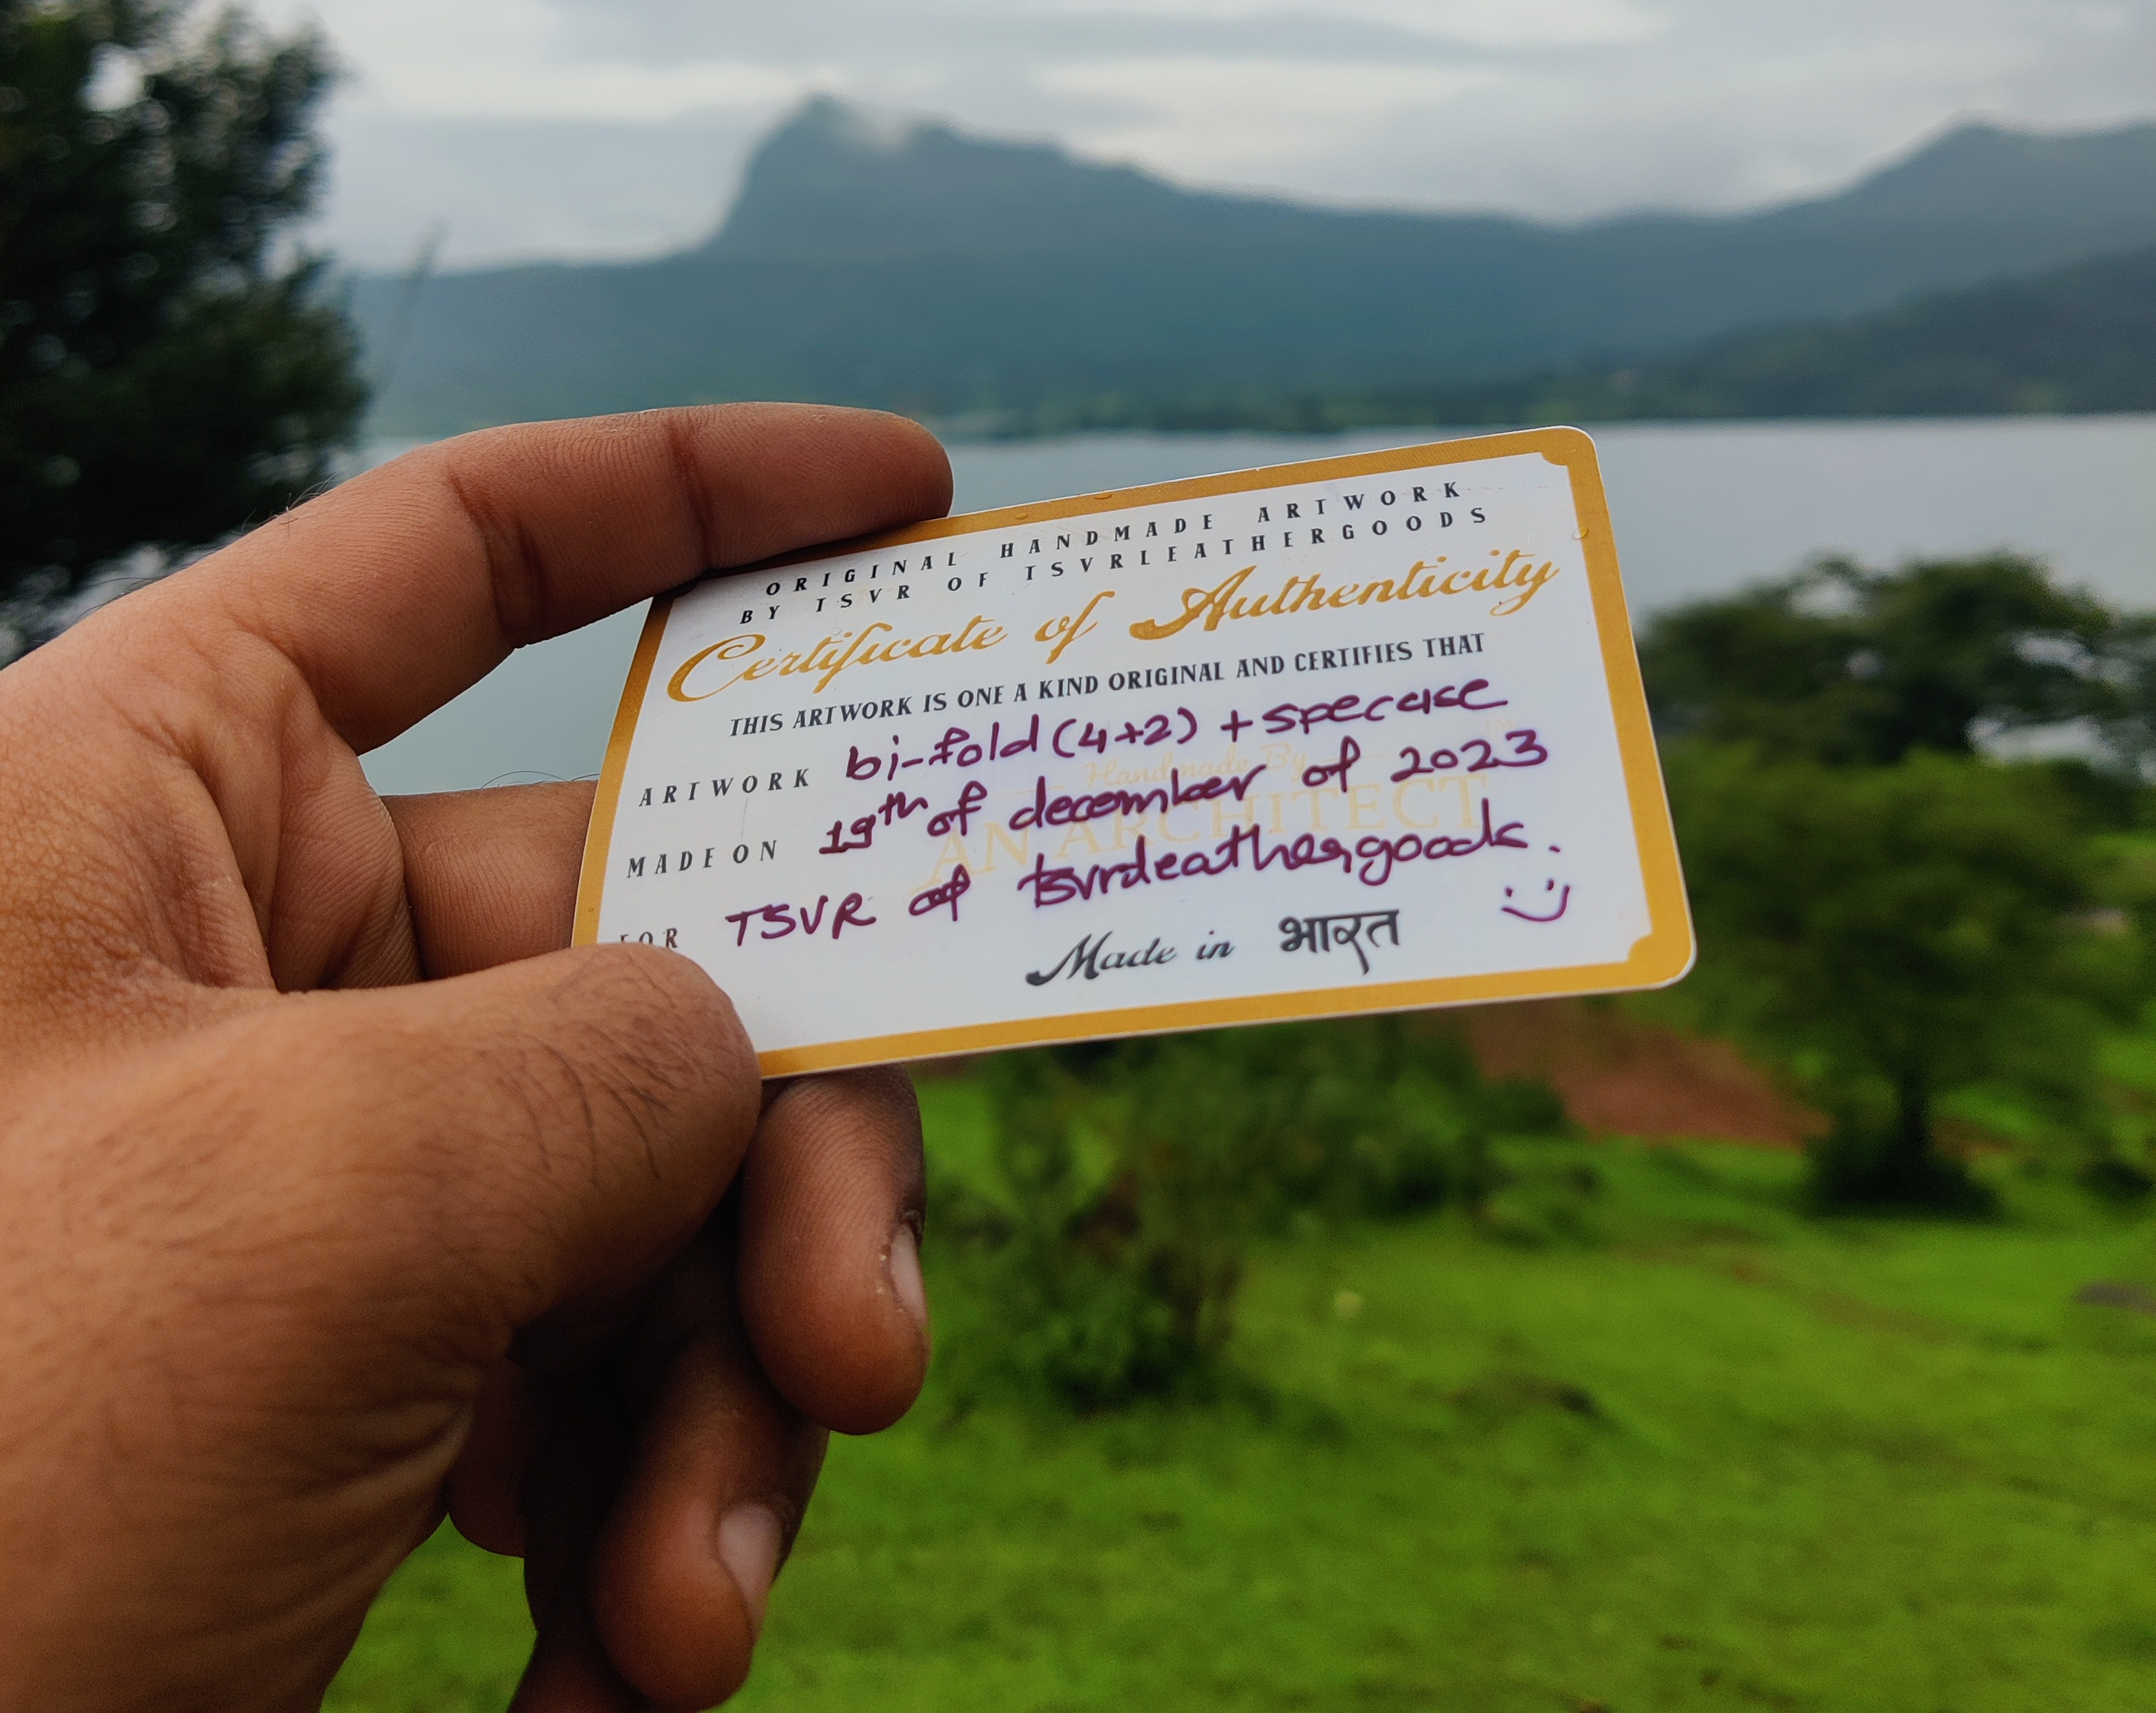 ORIGINAL HANDMADE ARTWORK
BY TSVR OF TSVRLEATHERGOODS
Certificate of Authenticity
THIS ARTWORK IS ONE A KIND ORIGINAL AND CERTIFIES THAT
ARTWORK bi-fold (4+2) + specase
Handmade By
MADE ON 19th of december of 2023
AN ARCHITECT
FOR TSVR of tsvrleathergoods.
Made in भारत